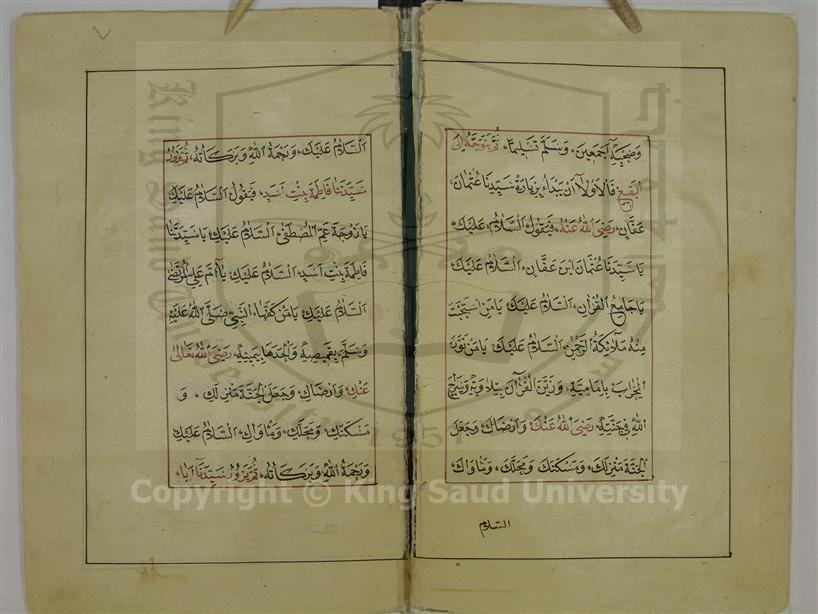 وَصَحْبِهِ أَجْمَعِينَ، وَسَلَّمَ تَسْلِيمًا، ثُمَّ يَتَوَجَّهُ إِلَى
الْبَقِيعِ فَالْأَوْلَى أَنْ يَبْدَأَ بِزِيَارَةِ سَيِّدِنَا عُثْمَانَ،
عَفَّانَ، رَضِيَ اللهُ عَنْهُ، فَيَقُولُ، السَّلَامُ، عَلَيْكَ،
يَا سَيِّدَنَا عُثْمَانَ ابْنَ عَفَّانَ، السَّلَامُ عَلَيْكَ
يَا جَامِعَ الْقُرْآنِ، السَّلَامُ عَلَيْكَ يَا مَنِ اسْتَحْيَتْ
مِنْهُ مَلَائِكَةُ الرَّحْمٰنِ، السَّلَامُ عَلَيْكَ يَا مَنْ نَوَّرَ
الْمِحْرَابَ بِإِمَامِيَّتِهِ، وَزَيَّنَ الْقُرْآنَ بِتِلَاوَتِهِ
اللهِ فِي جَنَّتِهِ، رَضِيَ اللهُ عَنْكَ وَأَرْضَاكَ، وَجَعَلَ
الْجَنَّةَ مَنْزِلَكَ، وَمَسْكَنَكَ وَمَحَلَّكَ، وَمَأْوَاكَ
السلام
السَّلَامُ عَلَيْكَ، وَرَحْمَةُ اللهِ وَبَرَكَاتُهُ، ثُمَّ يَزُورُ
سَيِّدَتَنَا فَاطِمَةَ بِنْتِ أَسَدٍ، فَيَقُولُ السَّلَامُ عَلَيْكِ
يَا زَوْجَةَ عَمِّ الْمُصْطَفَى، السَّلَامُ عَلَيْكِ، يَا سَيِّدَتَنَا
فَاطِمَةُ بِنْتِ أَسَدٍ، السَّلَامُ عَلَيْكِ يَا أُمَّ عَلِيٍّ الْمُرْتَضَى
السَّلَامُ عَلَيْكِ يَا مَنْ كَفَّنَهَا، النَّبِيُّ صَلَّى اللهُ عَلَيْهِ
وَسَلَّمَ بِقَمِيصِهِ وَأَلْحَدَهَا بِيَمِينِهِ رَضِيَ اللهُ تَعَالَى
عَنْكِ وَأَرْضَاكِ، وَجَعَلَ الْجَنَّةَ مَنْزِلَكِ، وَ
مَسْكَنَكِ، وَمَحَلَّكِ، وَمَأْوَاكِ، السَّلَامُ عَلَيْكِ
وَرَحْمَةُ اللهِ وَبَرَكَاتُهُ، ثُمَّ يَزُورُ سَيِّدَنَا أَبَا،
Copyright © King Saud University
King Saud University
1957